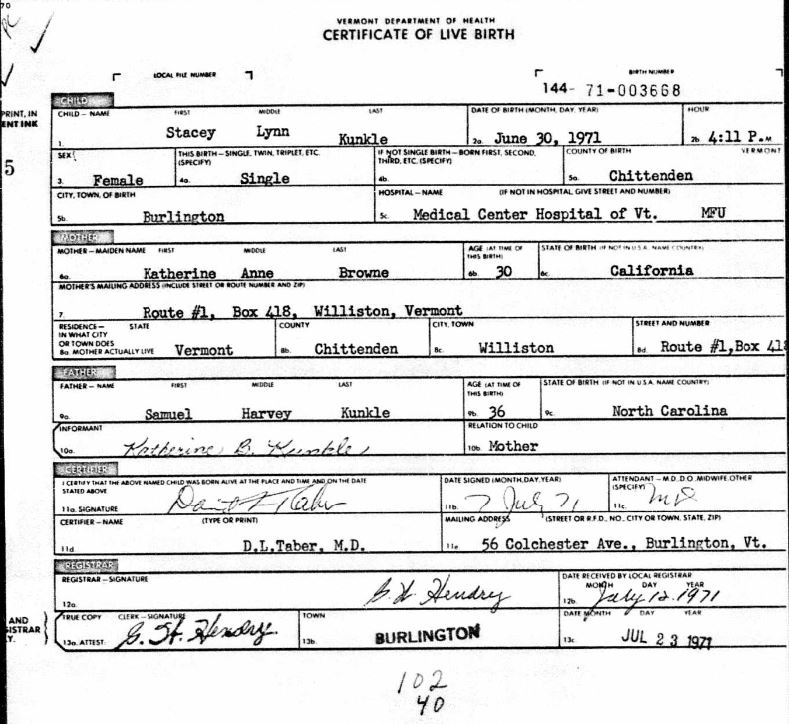 70
VERMONT DEPARTMENT OF HEALTH
CERTIFICATE OF LIVE BIRTH
LOCAL FILE NUMBER BIRTH NUMBER
144- 71-003668
CHILD
PRINT, IN
ENT INK
CHILD – NAME FIRST MIDDLE LAST DATE OF BIRTH (MONTH, DAY, YEAR) HOUR
1. Stacey Lynn Kunkle 2a. June 30, 1971 2b. 4:11 P.M
5
SEX THIS BIRTH – SINGLE, TWIN, TRIPLET, ETC. (SPECIFY) IF NOT SINGLE BIRTH – BORN FIRST, SECOND, THIRD, ETC. (SPECIFY) COUNTY OF BIRTH VERMONT
3. Female 4a. Single 4b. 5a. Chittenden
CITY, TOWN, OF BIRTH HOSPITAL – NAME (IF NOT IN HOSPITAL, GIVE STREET AND NUMBER)
5b. Burlington 5c. Medical Center Hospital of Vt. MFU
MOTHER
MOTHER – MAIDEN NAME FIRST MIDDLE LAST AGE (AT TIME OF THIS BIRTH) STATE OF BIRTH (IF NOT IN U.S.A. NAME COUNTRY)
6a. Katherine Anne Browne 6b. 30 6c. California
MOTHER'S MAILING ADDRESS (INCLUDE STREET OR ROUTE NUMBER AND ZIP)
7. Route #1, Box 418, Williston, Vermont
RESIDENCE – IN WHAT CITY OR TOWN DOES STATE COUNTY CITY, TOWN STREET AND NUMBER
8a. MOTHER ACTUALLY LIVE Vermont 8b. Chittenden 8c. Williston 8d. Route #1, Box 418
FATHER
FATHER – NAME FIRST MIDDLE LAST AGE (AT TIME OF THIS BIRTH) STATE OF BIRTH (IF NOT IN U.S.A. NAME COUNTRY)
9a. Samuel Harvey Kunkle 9b. 36 9c. North Carolina
INFORMANT RELATION TO CHILD
10a. Katherine B. Kunkle 10b. Mother
CERTIFIER
I CERTIFY THAT THE ABOVE NAMED CHILD WAS BORN ALIVE AT THE PLACE AND TIME AND ON THE DATE STATED ABOVE DATE SIGNED (MONTH, DAY, YEAR) ATTENDANT – M.D., D.O., MIDWIFE, OTHER (SPECIFY)
11a. SIGNATURE David L Taber 11b. 7 July 71 11c. MD
CERTIFIER – NAME (TYPE OR PRINT) MAILING ADDRESS (STREET OR R.F.D., NO., CITY OR TOWN, STATE, ZIP)
11d D.L.Taber, M.D. 11e 56 Colchester Ave., Burlington, Vt.
REGISTRAR
REGISTRAR – SIGNATURE DATE RECEIVED BY LOCAL REGISTRAR
MONTH DAY YEAR
12a. G H Hendry 12b. July 12, 1971
AND
ISTRAR
Y.
TRUE COPY CLERK – SIGNATURE TOWN DATE MONTH DAY YEAR
13a. ATTEST. G. H. Hendry. 13b. BURLINGTON 13c JUL 23 1971
102
40